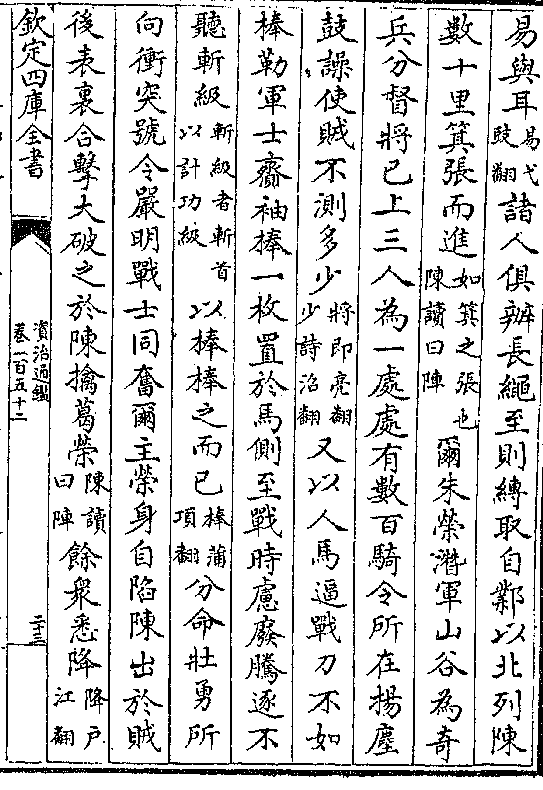 易與耳易弋豉翻諸人俱辦長繩至則縛取自鄴以北列陳
數十里箕張而進如箕之張也陳讀曰陣爾朱榮潛軍山谷為奇
兵分督將已上三人為一處處有數百騎令所在揚塵
鼓譟使賊不測多少將即亮翻少詩沼翻又以人馬逼戰刀不如
棒勒軍士齎袖棒一枚置於馬側至戰時慮廢騰逐不
聽斬級斬級者斬首以計功級以棒棒之而已棒蒲項翻分命壯勇所
向衝突號令嚴明戰士同奮爾主榮身自陷陳出於賊
後表裏合擊大破之於陳擒葛榮陳讀曰陣餘衆悉降降戶江翻
欽定四庫全書
資治通鑑
卷一百五十二
二十三